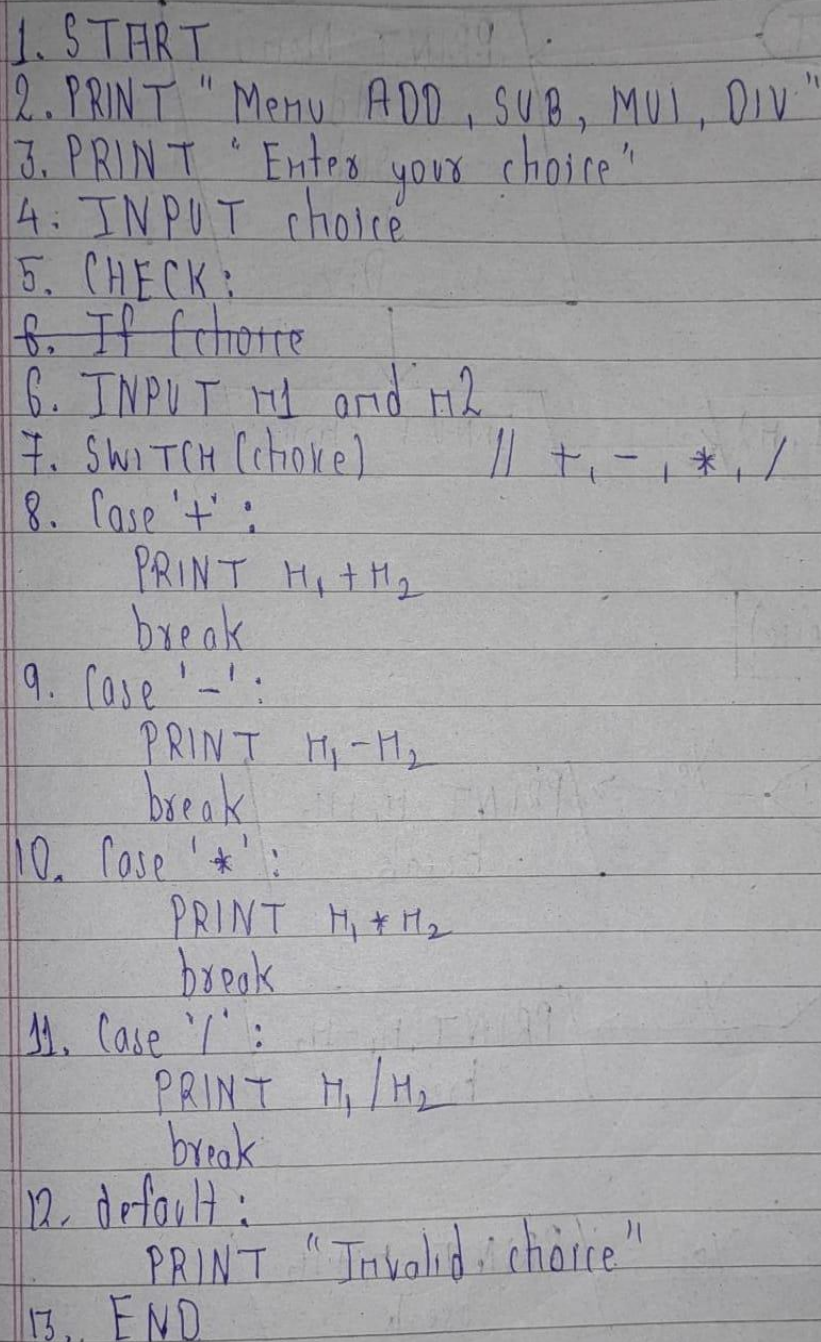 1. START
2. PRINT "Menu ADD, SUB, MUL, DIV"
3. PRINT "Enter your choice"
4. INPUT choice
5. CHECK:
6. If (choice
6. INPUT n1 and n2
7. SWITCH (choice) // +, -, *, /
8. Case '+' :
PRINT n₁ + n₂
break
9. Case '-' :
PRINT n₁ - n₂
break
10. Case '*' :
PRINT n₁ * n₂
break
11. Case '/' :
PRINT n₁ / n₂
break
12. default :
PRINT "Invalid choice"
13. END